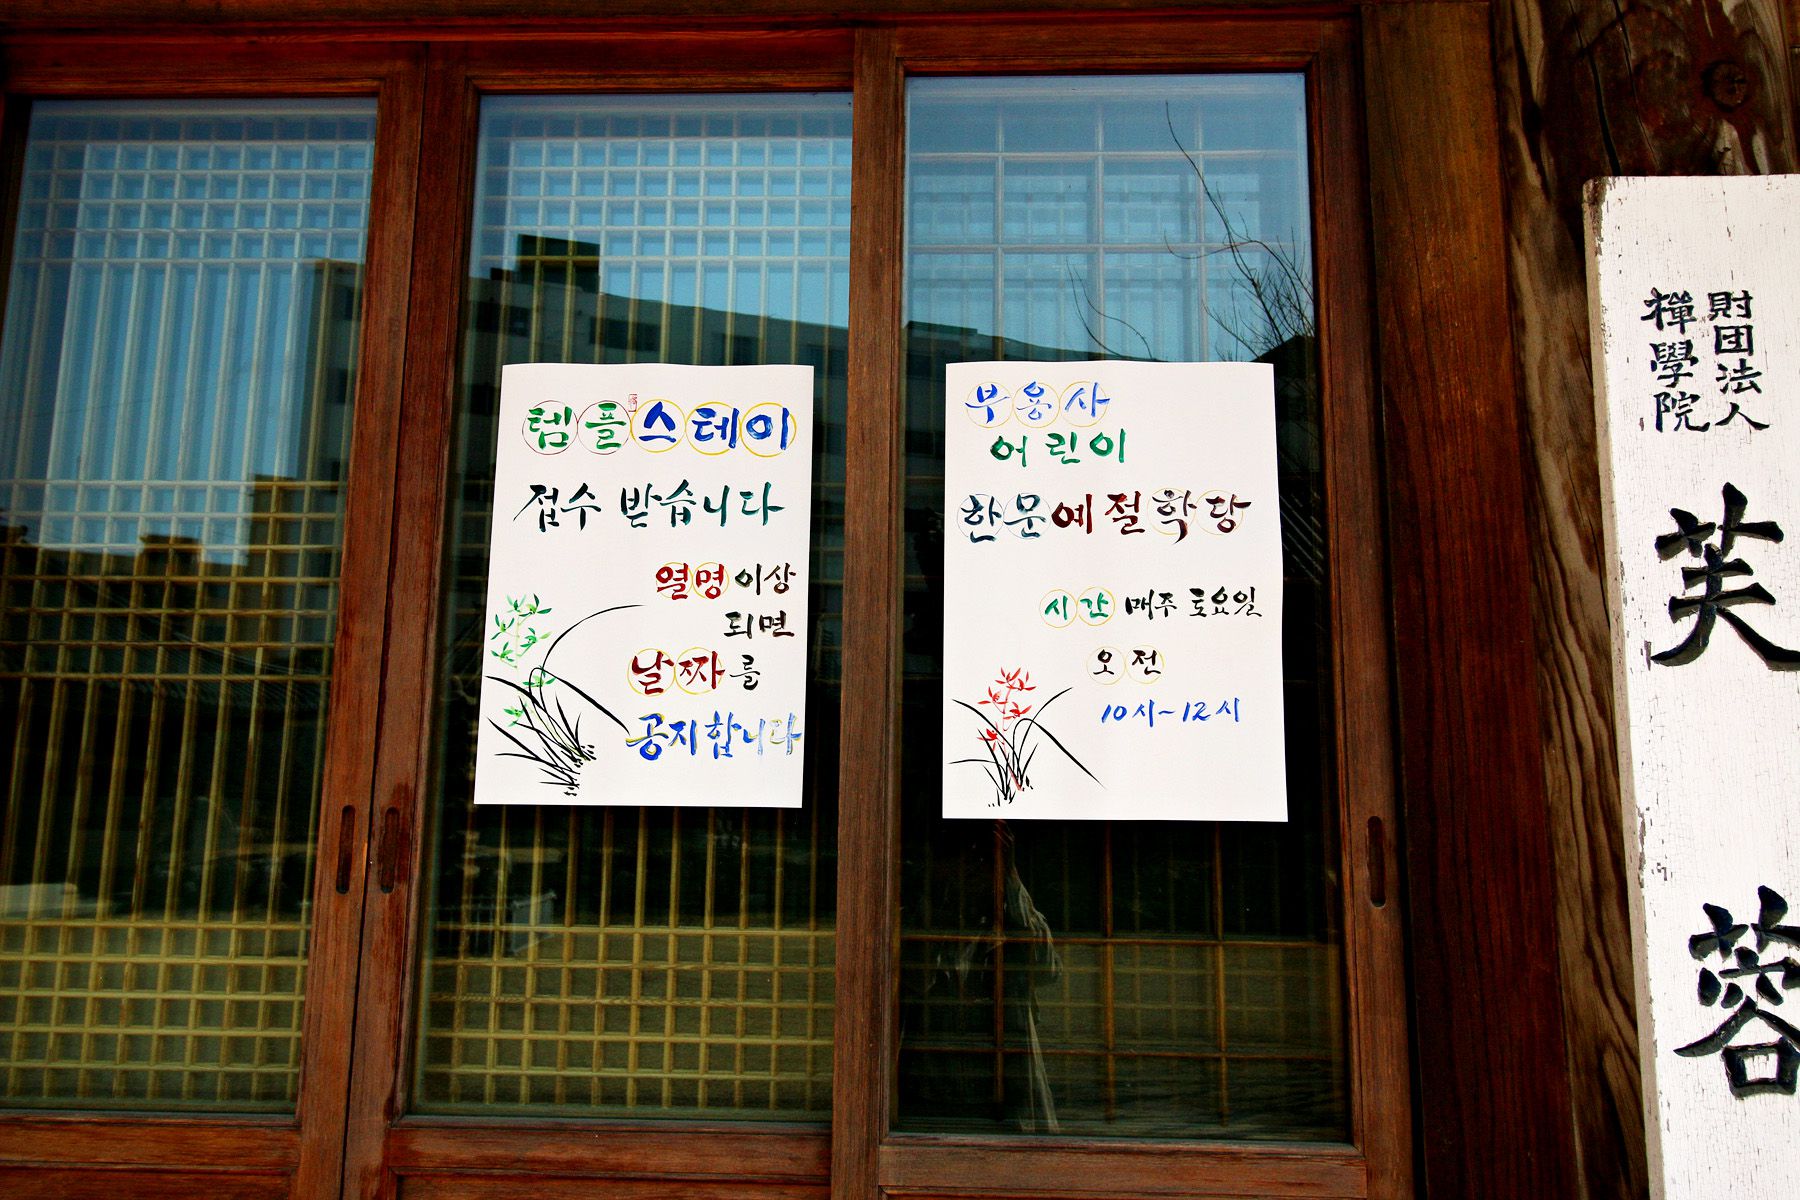 템플스테이
접수 받습니다
열명 이상
되면
날짜를
공지합니다
부용사
어린이
한문예절학당
시간 매주 토요일
오전
10시~12시
財団法人
禪學院
芙蓉